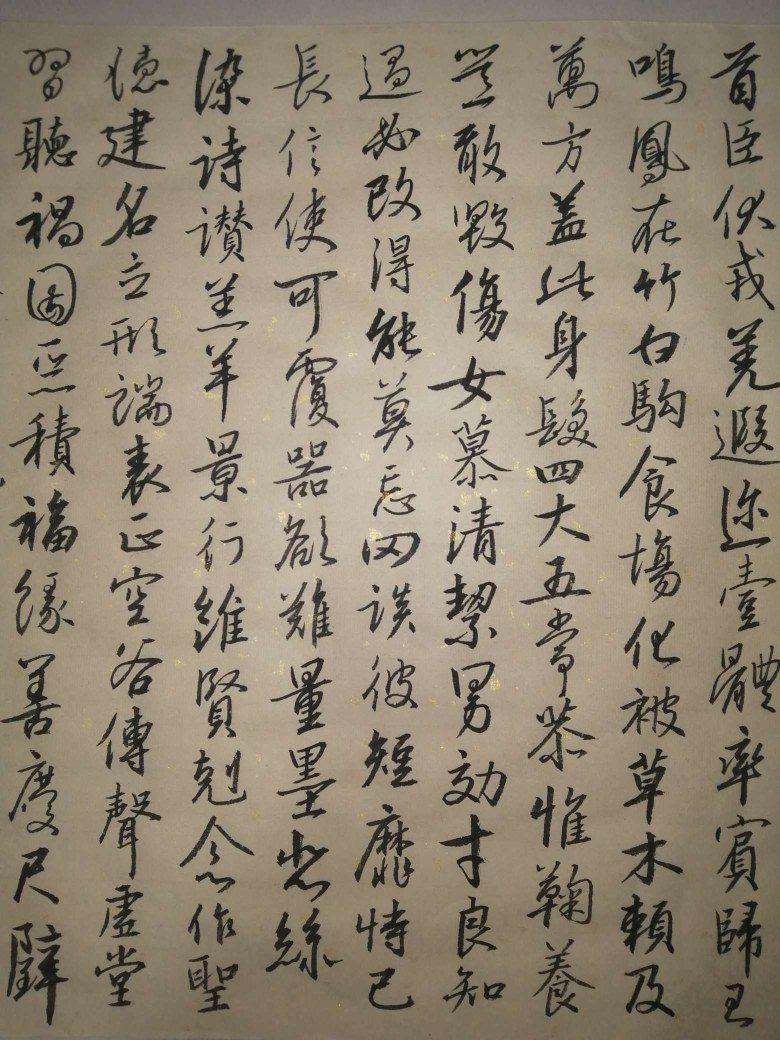 首臣伏戎羌遐迩壹體率賓歸王
鳴鳳在竹白駒食場化被草木賴及
萬方蓋此身髮四大五常恭惟鞠養
豈敢毀傷女慕清絜男效才良知
過必改得能莫忘罔談彼短靡恃己
長信使可覆器欲難量墨悲絲
染詩讚羔羊景行維賢剋念作聖
德建名立形端表正空谷傳聲虛堂
習聽禍因惡積福緣善慶尺璧